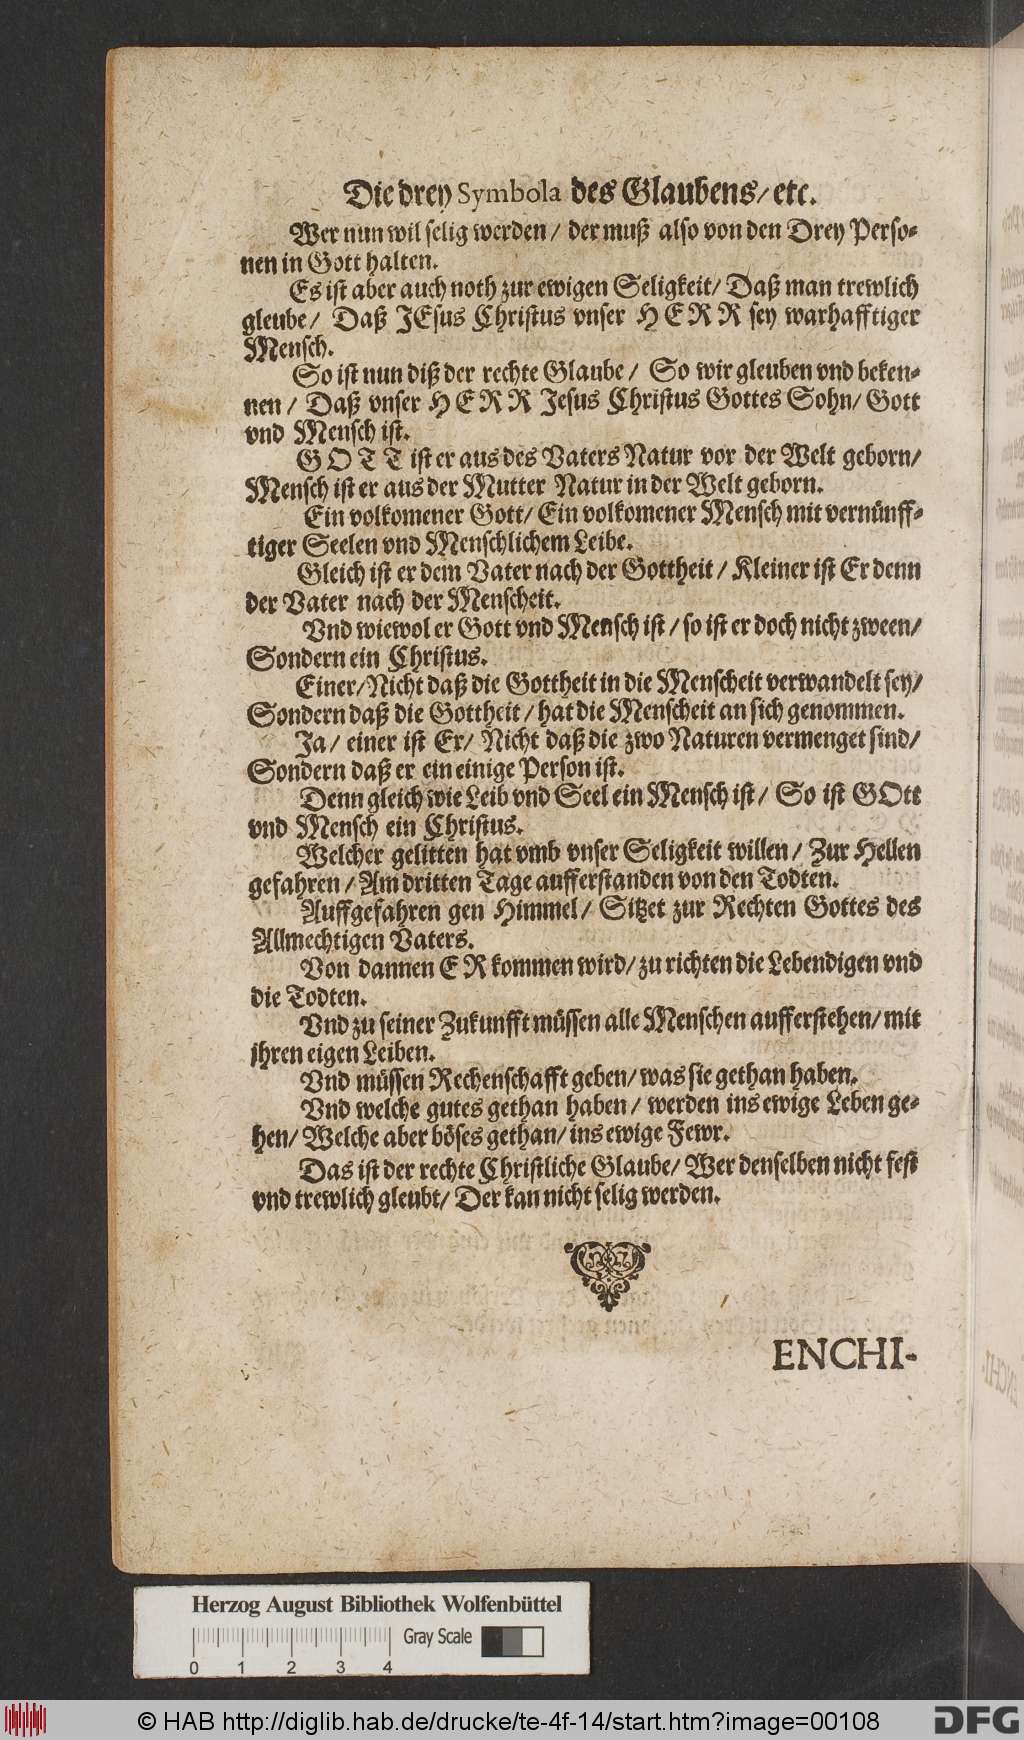 Die drey Symbola des Glaubens/ etc.
Wer nun wil selig werden / der muß also von den Drey Perso-
nen in Gott halten.
Es ist aber auch noth zur ewigen Seligkeit/ Daß man trewlich
gleube/ Daß JEsus Christus vnser HERR sey warhafftiger
Mensch.
So ist nun diß der rechte Glaube / So wir gleuben vnd beken-
nen / Daß vnser HERR Jesus Christus Gottes Sohn/ Gott
vnd Mensch ist.
GOTT ist er aus des Vaters Natur vor der Welt geborn/
Mensch ist er aus der Mutter Natur in der Welt geborn.
Ein volkomener Gott/ Ein volkomener Mensch mit vernünff-
tiger Seelen vnd Menschlichem Leibe.
Gleich ist er dem Vater nach der Gottheit / Kleiner ist Er denn
der Vater nach der Menscheit.
Vnd wiewol er Gott vnd Mensch ist / so ist er doch nicht zween/
Sondern ein Christus.
Einer/Nicht daß die Gottheit in die Menscheit verwandelt sey/
Sondern daß die Gottheit / hat die Menscheit an sich genommen.
Ja / einer ist Er/ Nicht daß die zwo Naturen vermenget sind/
Sondern daß er ein einige Person ist.
Denn gleich wie Leib vnd Seel ein Mensch ist / So ist GOtt
vnd Mensch ein Christus.
Welcher gelitten hat vmb vnser Seligkeit willen / Zur Hellen
gefahren / Am dritten Tage aufferstanden von den Todten.
Auffgefahren gen Himmel / Sitzet zur Rechten Gottes des
Allmechtigen Vaters.
Von dannen ER kommen wird/ zu richten die Lebendigen vnd
die Todten.
Vnd zu seiner Zukunfft müssen alle Menschen aufferstehen/ mit
jhren eigen Leiben.
Vnd müssen Rechenschafft geben/ was sie gethan haben.
Vnd welche gutes gethan haben / werden ins ewige Leben ge-
hen/ Welche aber böses gethan/ ins ewige Fewr.
Das ist der rechte Christliche Glaube/ Wer denselben nicht fest
vnd trewlich gleubt/ Der kan nicht selig werden.
ENCHI-
Herzog August Bibliothek Wolfenbüttel
Gray Scale
0 1 2 3 4
© HAB http://diglib.hab.de/drucke/te-4f-14/start.htm?image=00108
DFG